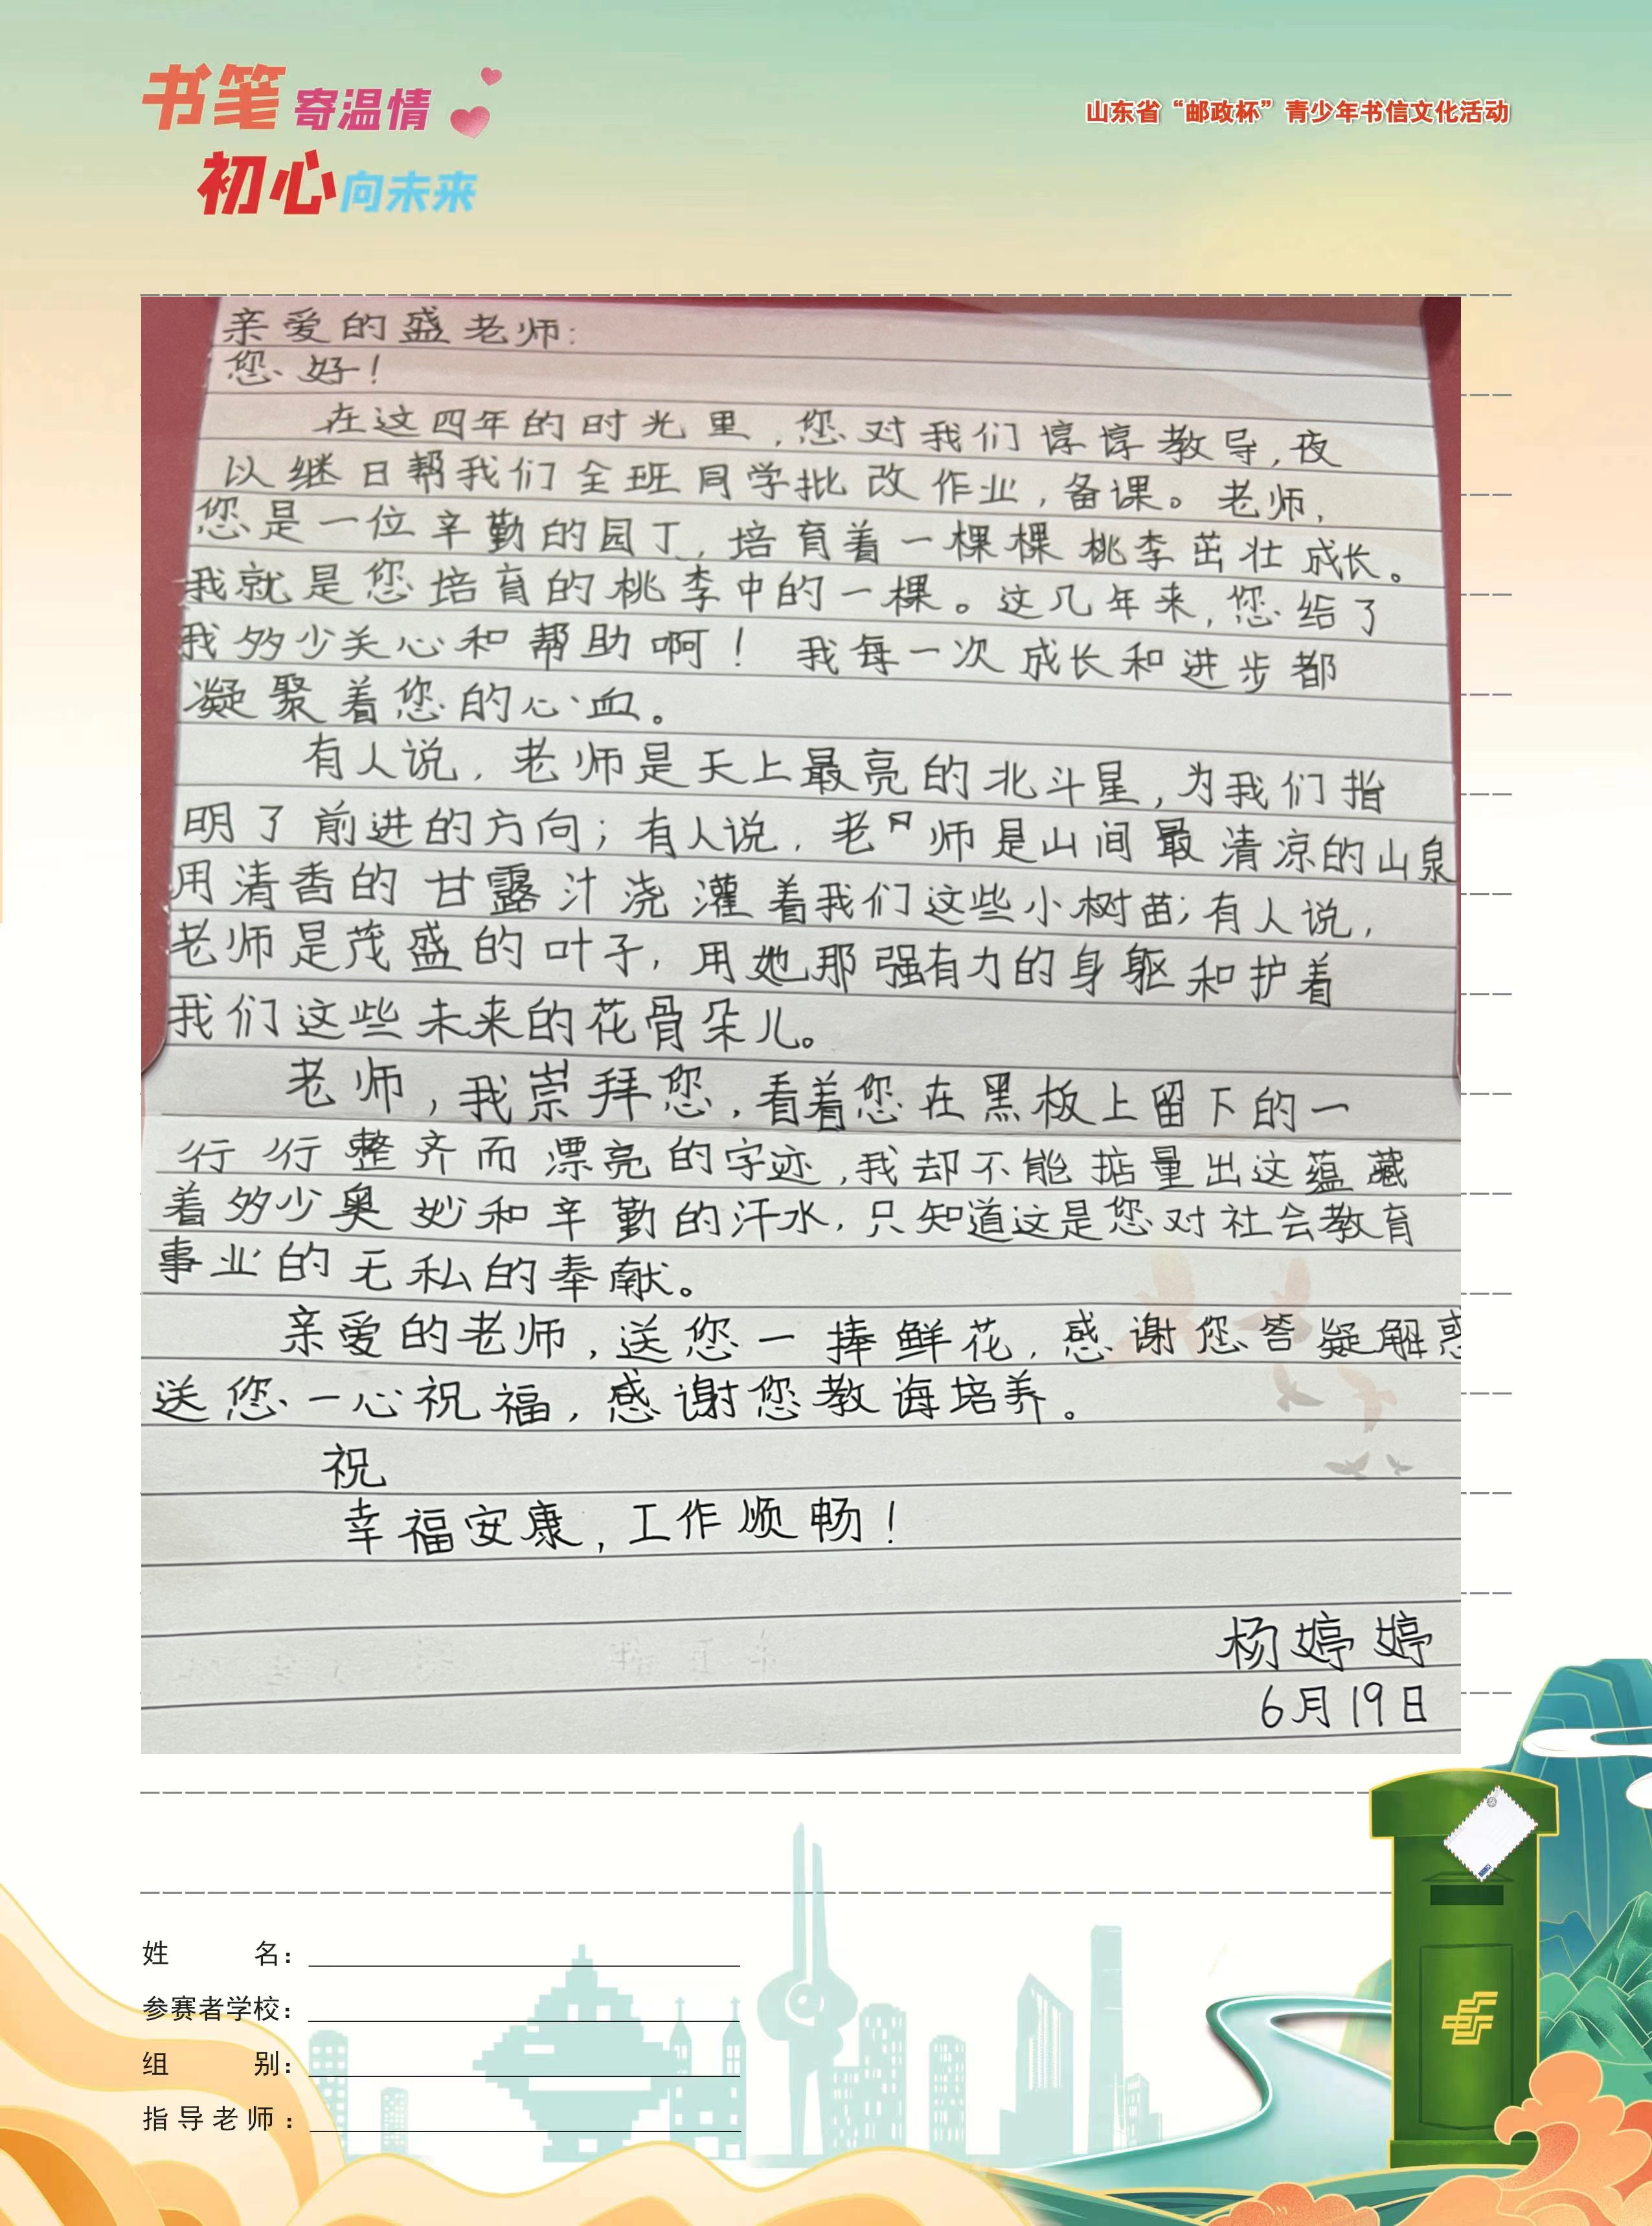 书笔寄温情
初心向未来
山东省“邮政杯”青少年书信文化活动
亲爱的盛老师:
您好!
在这四年的时光里,您对我们谆谆教导,夜
以继日帮我们全班同学批改作业,备课。老师,
您是一位辛勤的园丁,培育着一棵棵桃李茁壮成长。
我就是您培育的桃李中的一棵。这几年来,您给了
我多少关心和帮助啊!我每一次成长和进步都
凝聚着您的心血。
有人说,老师是天上最亮的北斗星,为我们指
明了前进的方向;有人说,老师是山间最清凉的山泉
用清香的甘露汁浇灌着我们这些小树苗;有人说,
老师是茂盛的叶子,用她那强有力的身躯和护着
我们这些未来的花骨朵儿。
老师,我崇拜您,看着您在黑板上留下的一
行行整齐而漂亮的字迹,我却不能掂量出这蕴藏
着多少奥妙和辛勤的汗水,只知道这是您对社会教育
事业的无私的奉献。
亲爱的老师,送您一捧鲜花,感谢您答疑解惑
送您一心祝福,感谢您教诲培养。
祝
幸福安康,工作顺畅!
杨婷婷
6月19日
姓名:
参赛者学校:
组别:
指导老师: